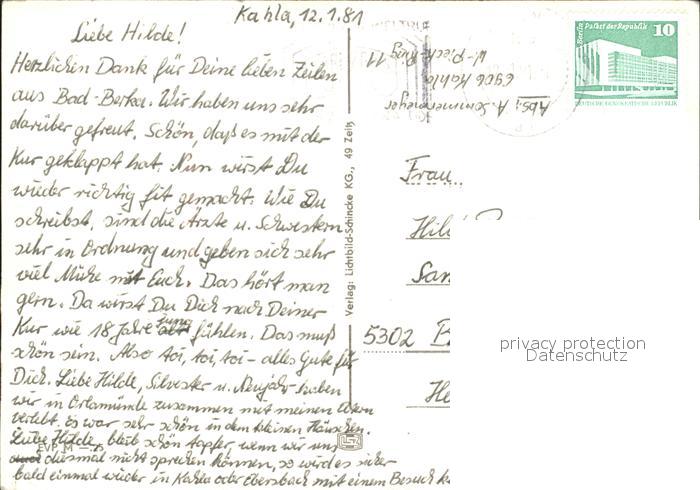 Kahla, 12.1.81
Liebe Hilde!
Herzlichen Dank für Deine lieben Zeilen
aus Bad-Berka. Wir haben uns sehr
darüber gefreut. Schön, daß es mit der
Kur geklappt hat. Nun wirst Du
wieder richtig fit gemacht. Wie Du
schreibst, sind die Ärzte u. Schwestern
sehr in Ordnung und geben sich sehr
viel Mühe mit Euch. Das hört man
gern. Da wirst Du Dich nach Deiner
Kur wie 18 Jahre jung fühlen. Das muß
schön sein. Also toi, toi, toi - alles Gute für
Dich. Liebe Hilde, Silvester u. Neujahr haben
wir in Orlamünde zusammen mit meinen Eltern
verlebt. Es war sehr schön in dem kleinen Häuschen.
Liebe Hilde, bleib schön tapfer, wenn wir uns
diesmal nicht sprechen können, so wird es sicher
bald einmal wieder in Kahla oder Ebersbach mit einem Besuch
EVP M
Verlag: Lichtbild-Schincke KG., 49 Zeitz
Abs.: A. Sommermeyer
6906 Kahla
W.-Pieck-Ring 11
Berlin Palast der Republik
10
DEUTSCHE DEMOKRATISCHE REPUBLIK
Frau
Hil
San
5302 B
He
privacy protection
Datenschutz